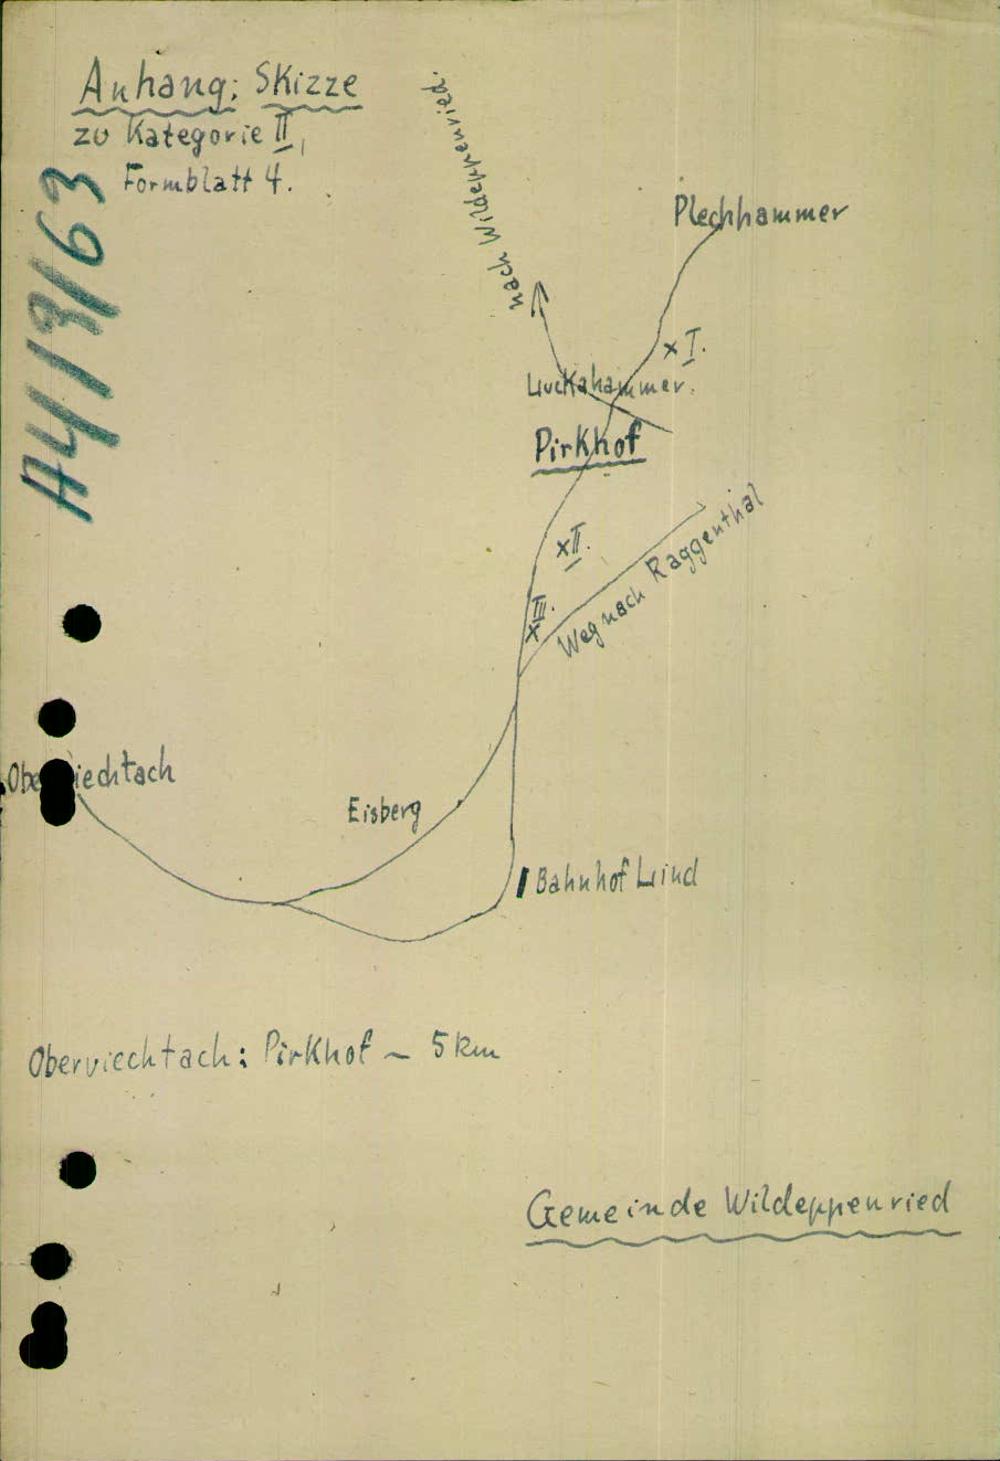 Anhang: Skizze
zu Kategorie II,
Formblatt 4.
A4/13/63
nach Wildeppenried.
Plechhammer
x I.
Luckahammer.
Pirkhof
x II.
x III.
Weg nach Raggenthal
Oberviechtach
Eisberg
Bahnhof Lind
Oberviechtach: Pirkhof ~ 5 km
Gemeinde Wildeppenried